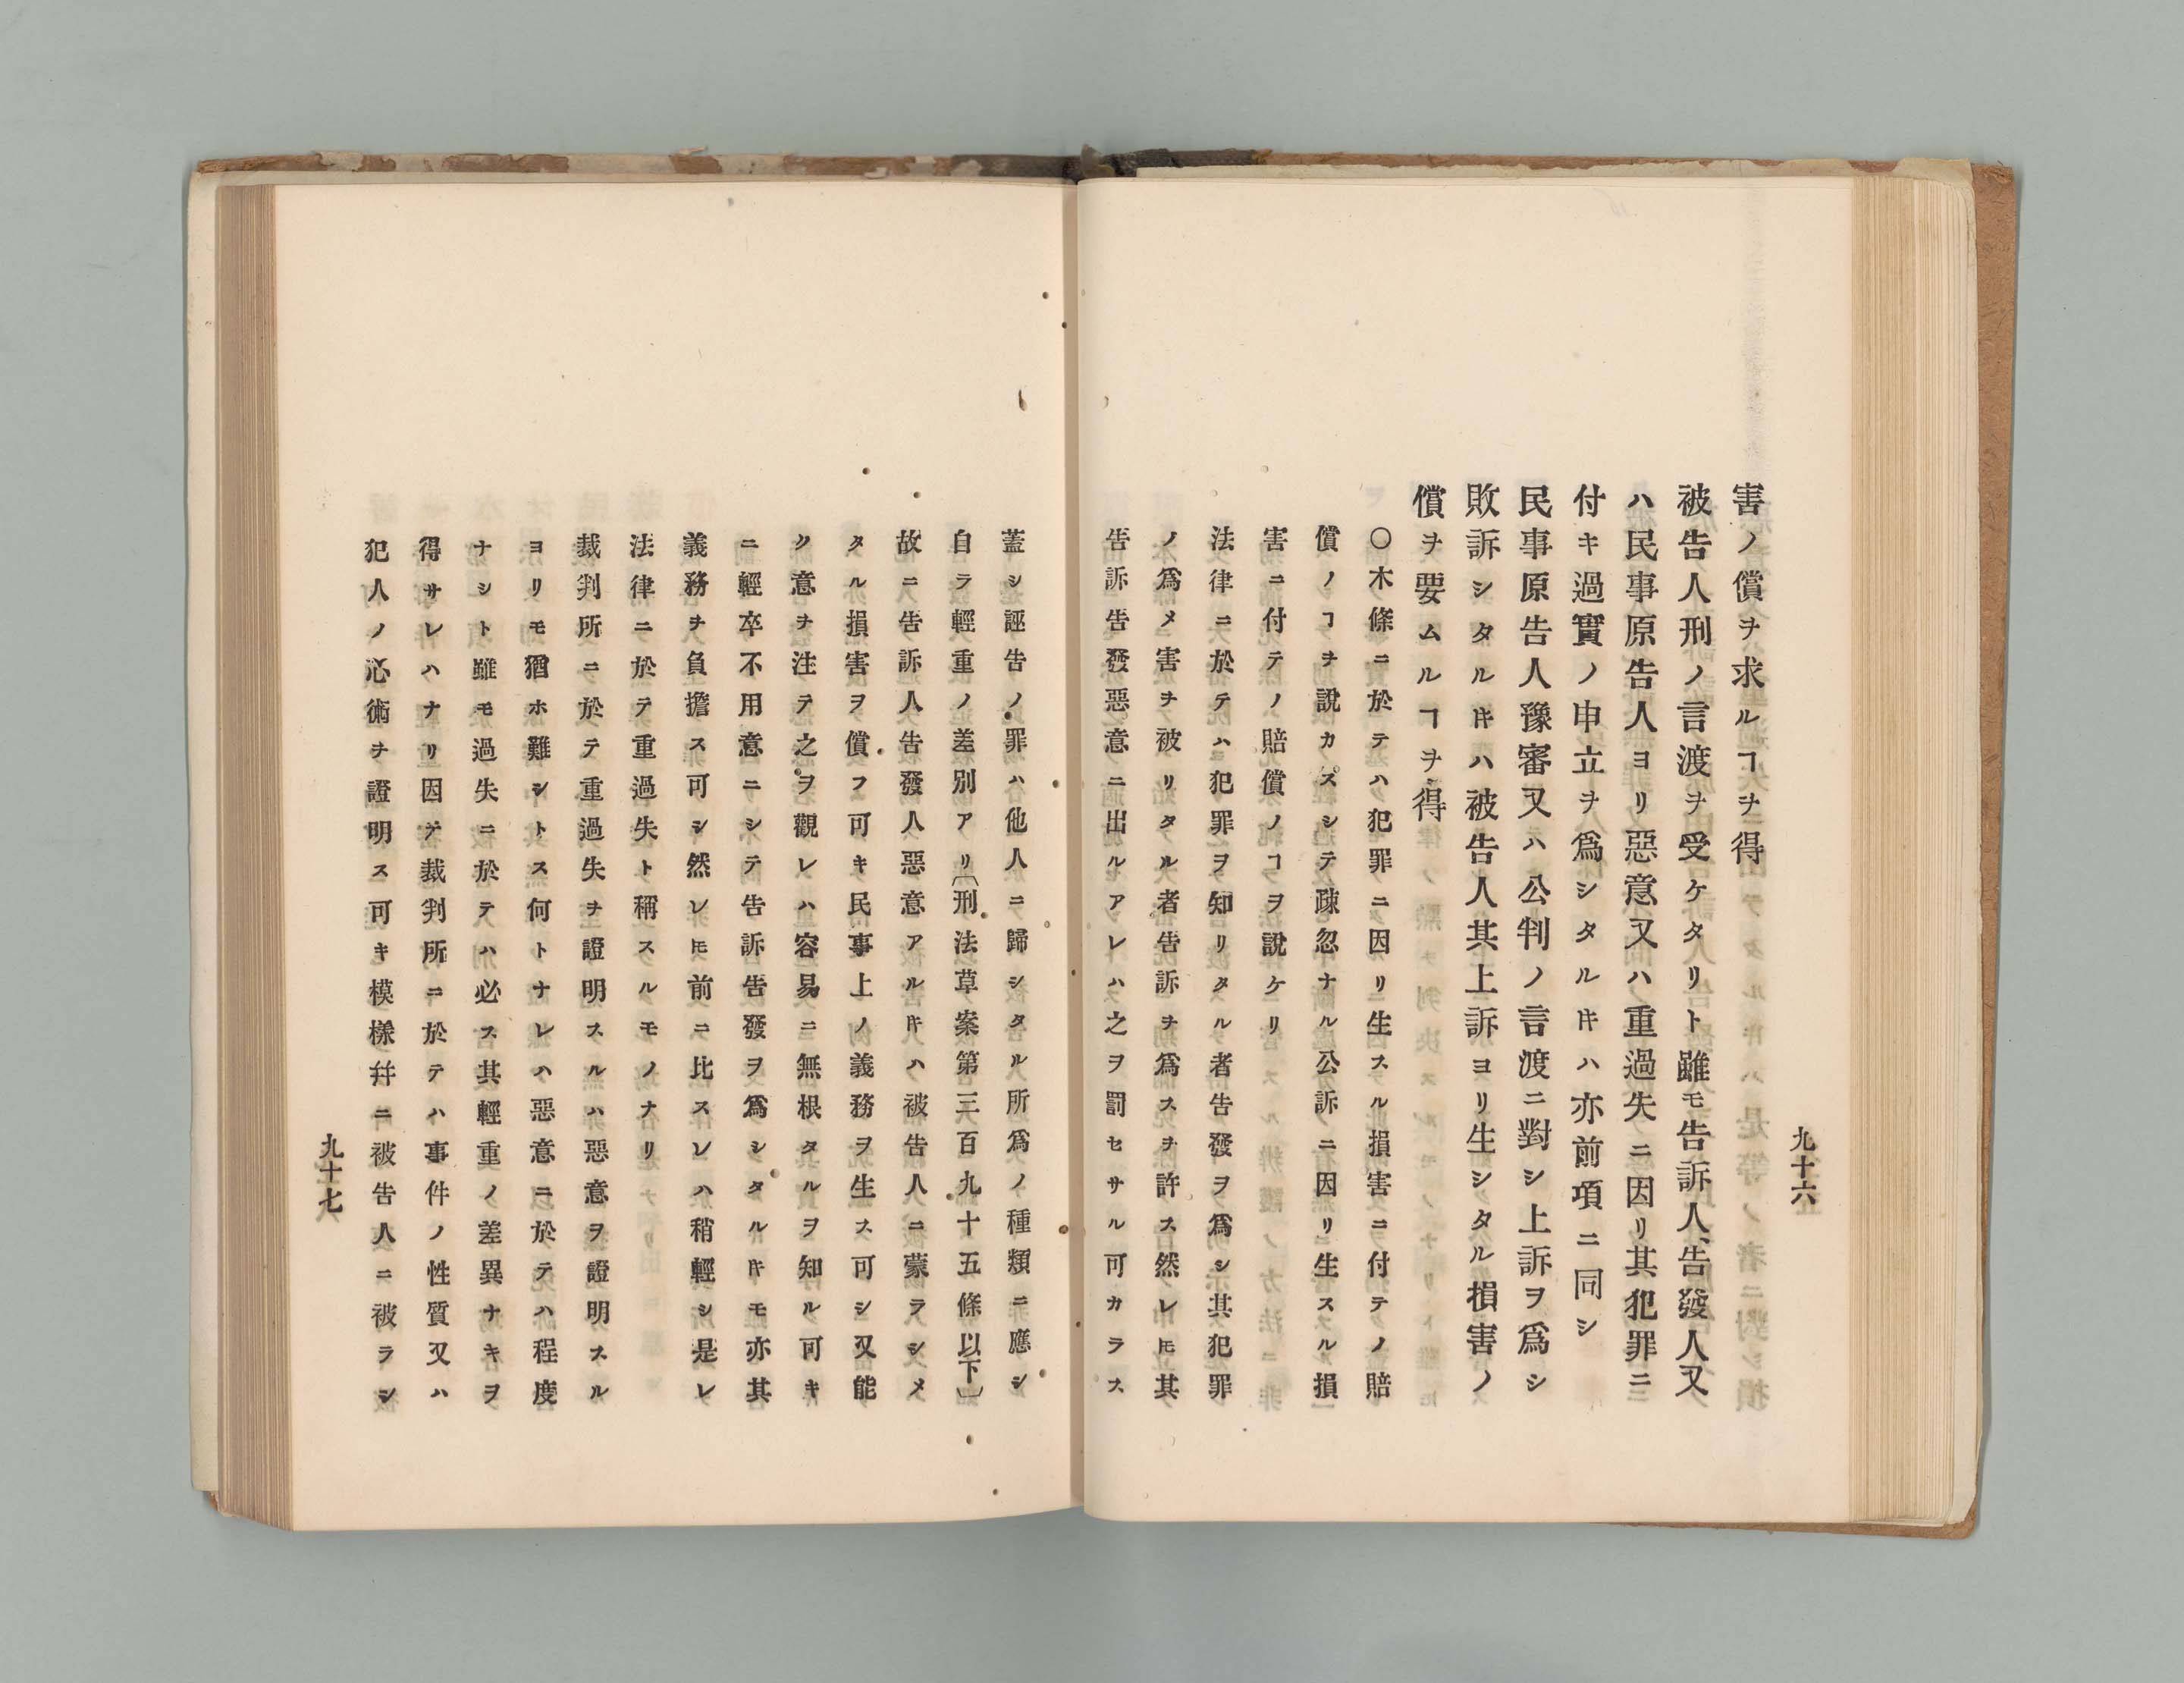 九十六
害ノ償ヲ求ルヿヲ得
被告人刑ノ言渡ヲ受ケタリト雖モ告訴人、告發人又
ハ民事原告人ヨリ惡意又ハ重過失ニ因リ其犯罪ニ
付キ過實ノ申立ヲ爲シタルキハ亦前項ニ同シ
民事原告人豫審又ハ公判ノ言渡ニ對シ上訴ヲ爲シ
敗訴シタルキハ被告人其上訴ヨリ生シタル損害ノ
償ヲ要ムルヿヲ得
〇木條ニ於テハ犯罪ニ因リ生スル損害ニ付テノ賠
償ノヿヲ說カスシテ疎忽ナル公訴ニ因リ生スル損
害ニ付テノ賠償ノヿヲ說ケリ
法律ニ於テハ犯罪ヲ知リタル者告發ヲ爲シ其犯罪
ノ爲メ害ヲ被リタル者告訴ヲ爲スヲ許ス然レ𪜈其
告訴告發惡意ニ出ルアレハ之ヲ罰セサル可カラス
蓋シ誣告ノ罪ハ他人ニ歸シタル所爲ノ種類ニ應シ
自ラ輕重ノ差別アリ〔刑法草案第三百九十五條以下〕
故ニ告訴人告發人惡意アルキハ被告人ニ蒙ラシメ
タル損害ヲ償フ可キ民事上ノ義務ヲ生ス可シ又能
ク意ヲ注テ之ヲ觀レハ容易ニ無根タルヲ知ル可キ
ニ輕卒不用意ニシテ告訴告發ヲ爲シタルキモ亦其
義務ヲ負擔ス可シ然レ𪜈前ニ比スレハ稍輕シ是レ
法律ニ於テ重過失ト稱スルモノナリ
裁判所ニ於テ重過失ヲ證明スルハ惡意ヲ證明スル
ヨリモ猶ホ難シトス何トナレハ惡意ニ於テハ程度
ナシト雖モ過失ニ於テハ必ス其輕重ノ差異ナキヲ
得サレハナリ因テ裁判所ニ於テハ事件ノ性質又ハ
犯人ノ心術ヲ證明ス可キ模樣幷ニ被告人ニ被ラシ
九十七